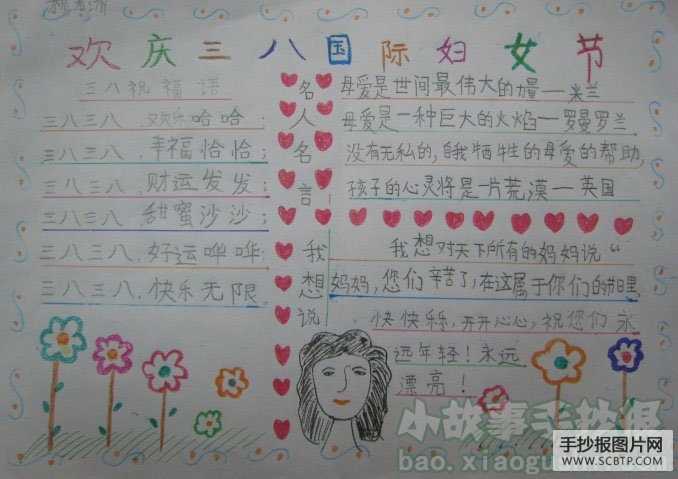 欢庆三八国际妇女节
三八祝福语
三八三八,欢乐哈哈;
三八三八,幸福恰恰;
三八三八,财运发发;
三八三八,甜蜜沙沙;
三八三八,好运哗哗;
三八三八,快乐无限。
名人名言
母爱是世间最伟大的力量—米兰
母爱是一种巨大的火焰—罗曼罗兰
没有无私的,自我牺牲的母爱的帮助,
孩子的心灵将是一片荒漠—英国
我想说
我想对天下所有的妈妈说:“
妈妈,您们辛苦了,在这属于你们的节日里
快快乐乐,开开心心,祝您们永
远年轻!永远
漂亮!
小故事手抄报
bao.xiaogu
手抄报图片网
WWW.SCBTP.COM